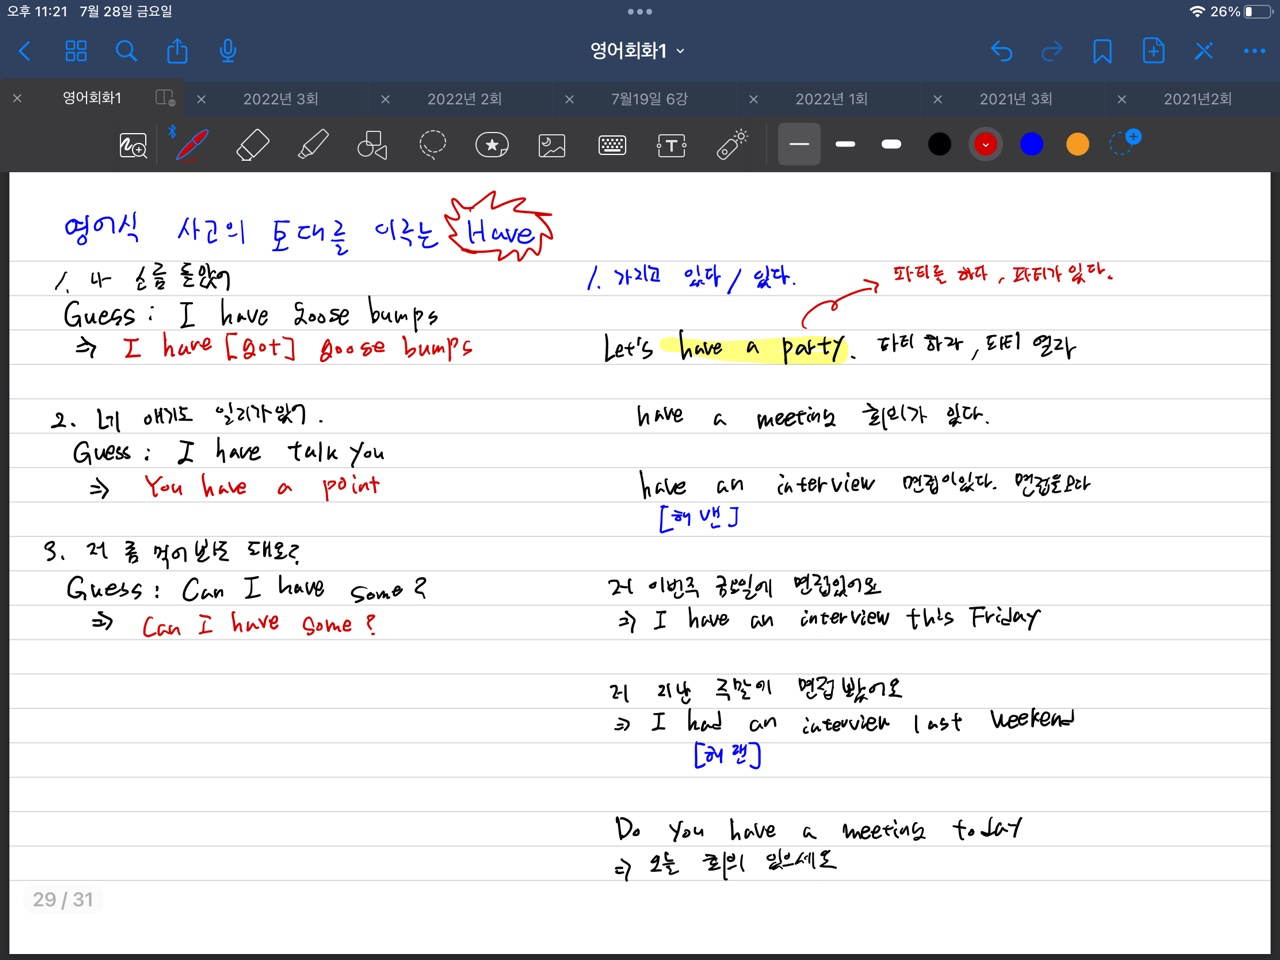 오후 11:21 7월 28일 금요일
26%
영어회화1
영어회화1
2022년 3회
2022년 2회
7월19일 6강
2022년 1회
2021년 3회
2021년2회
영어식 사고의 토대를 이루는 Have
1. 나 소름 돋았어
Guess : I have goose bumps
⇒ I have [got] goose bumps
2. 네 얘기도 일리가 있어.
Guess : I have talk you
⇒ You have a point
3. 저 좀 먹어 봐도 돼요?
Guess : Can I have some?
⇒ Can I have some?
1. 가지고 있다 / 있다.
파티를 하다, 파티가 있다.
Let's have a party. 파티 하자, 파티 열자
have a meeting 회의가 있다.
have an interview 면접이 있다. 면접을 보다
[해 밴]
저 이번주 금요일에 면접있어요
⇒ I have an interview this Friday
저 지난 주말에 면접 봤어요
⇒ I had an interview last weekend
[해 랜]
Do you have a meeting today
⇒ 오늘 회의 있으세요
29 / 31